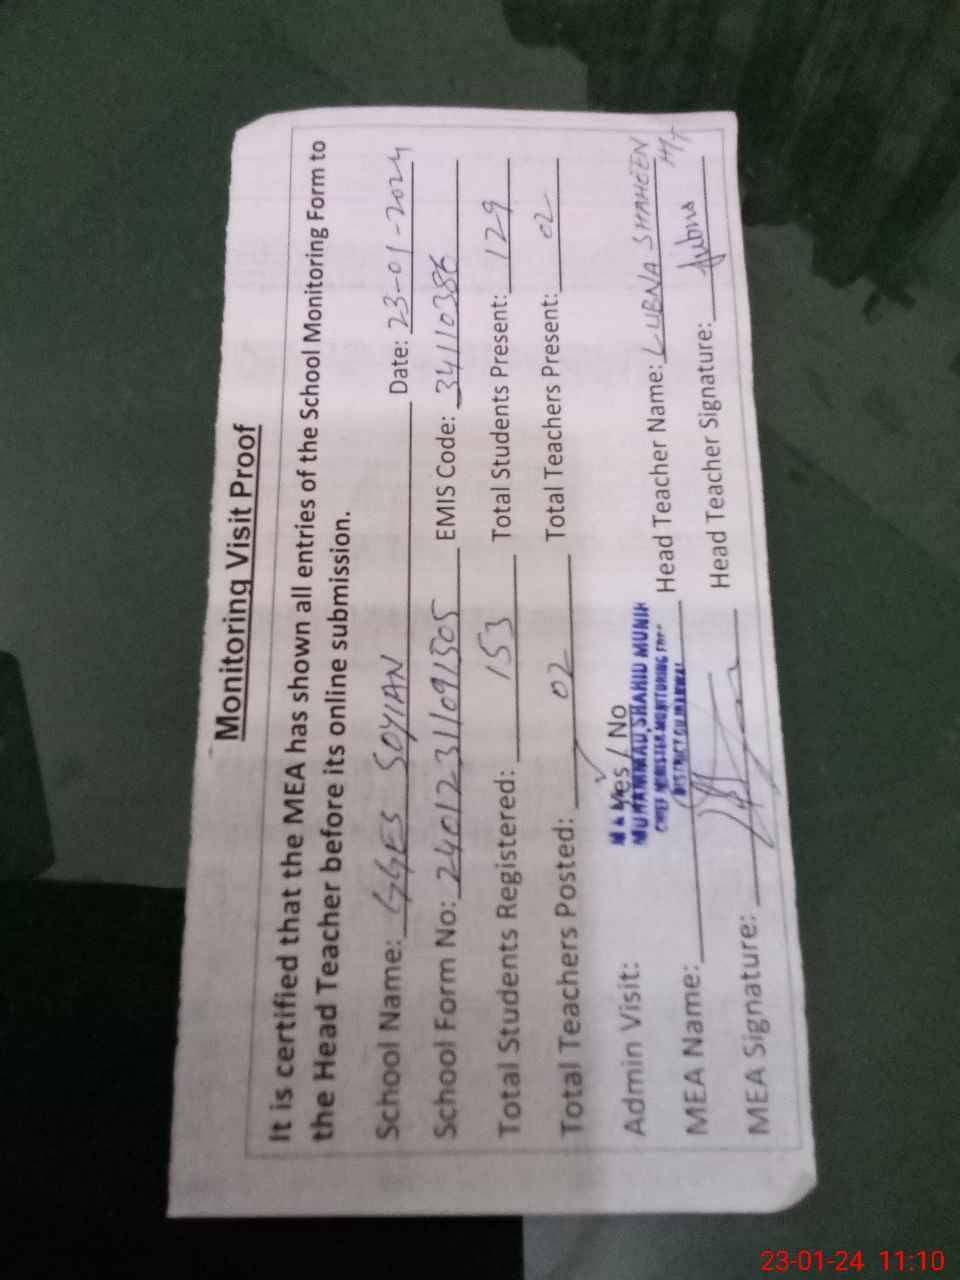 Monitoring Visit Proof
It is certified that the MEA has shown all entries of the School Monitoring Form to
the Head Teacher before its online submission.
School Name: GGES SOYIAN Date: 23-01-2024
School Form No: 24012311091505 EMIS Code: 34110386
Total Students Registered: 153 Total Students Present: 129
Total Teachers Posted: 02 Total Teachers Present: 02
Admin Visit: Yes / No
MUHAMMAD SHAHID MUNIR
CHIEF MINISTER MONITORING
DISTRICT
MEA Name: Head Teacher Name: LUBNA SHAHEEN
H/T
MEA Signature: Head Teacher Signature: Lubna
23-01-24 11:10